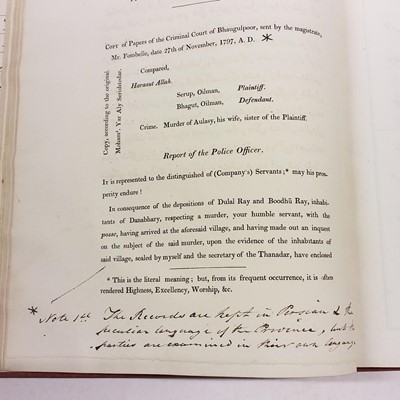 Copy of Papers of the Criminal Court of Bhaugulpoor, sent by the magistrate,
Mr. Fombelle, date 27th of November, 1797, A. D. *
Copy, according to the original.
Mohamd. Yar Aly Serishtedar.
Compared,
Harasut Allah.
Serup, Oilman, Plaintiff.
Bhagut, Oilman, Defendant.
Crime. Murder of Aulasy, his wife, sister of the Plaintiff.
Report of the Police Officer.
It is represented to the distinguished of (Company's) Servants;* may his pros-
perity endure!
In consequence of the depositions of Dulal Ray and Boodhû Ray, inhabi-
tants of Danabhary, respecting a murder, your humble servant, with the
posse, having arrived at the aforesaid village, and having made out an inquest
on the subject of the said murder, upon the evidence of the inhabitants of
said village, sealed by myself and the secretary of the Thanadar, have enclosed
* This is the literal meaning; but, from its frequent occurrence, it is often
rendered Highness, Excellency, Worship, &c.
* Note 1st The Records are kept in Persian & the
peculiar language of the Province, but the
parties are examined in their own language